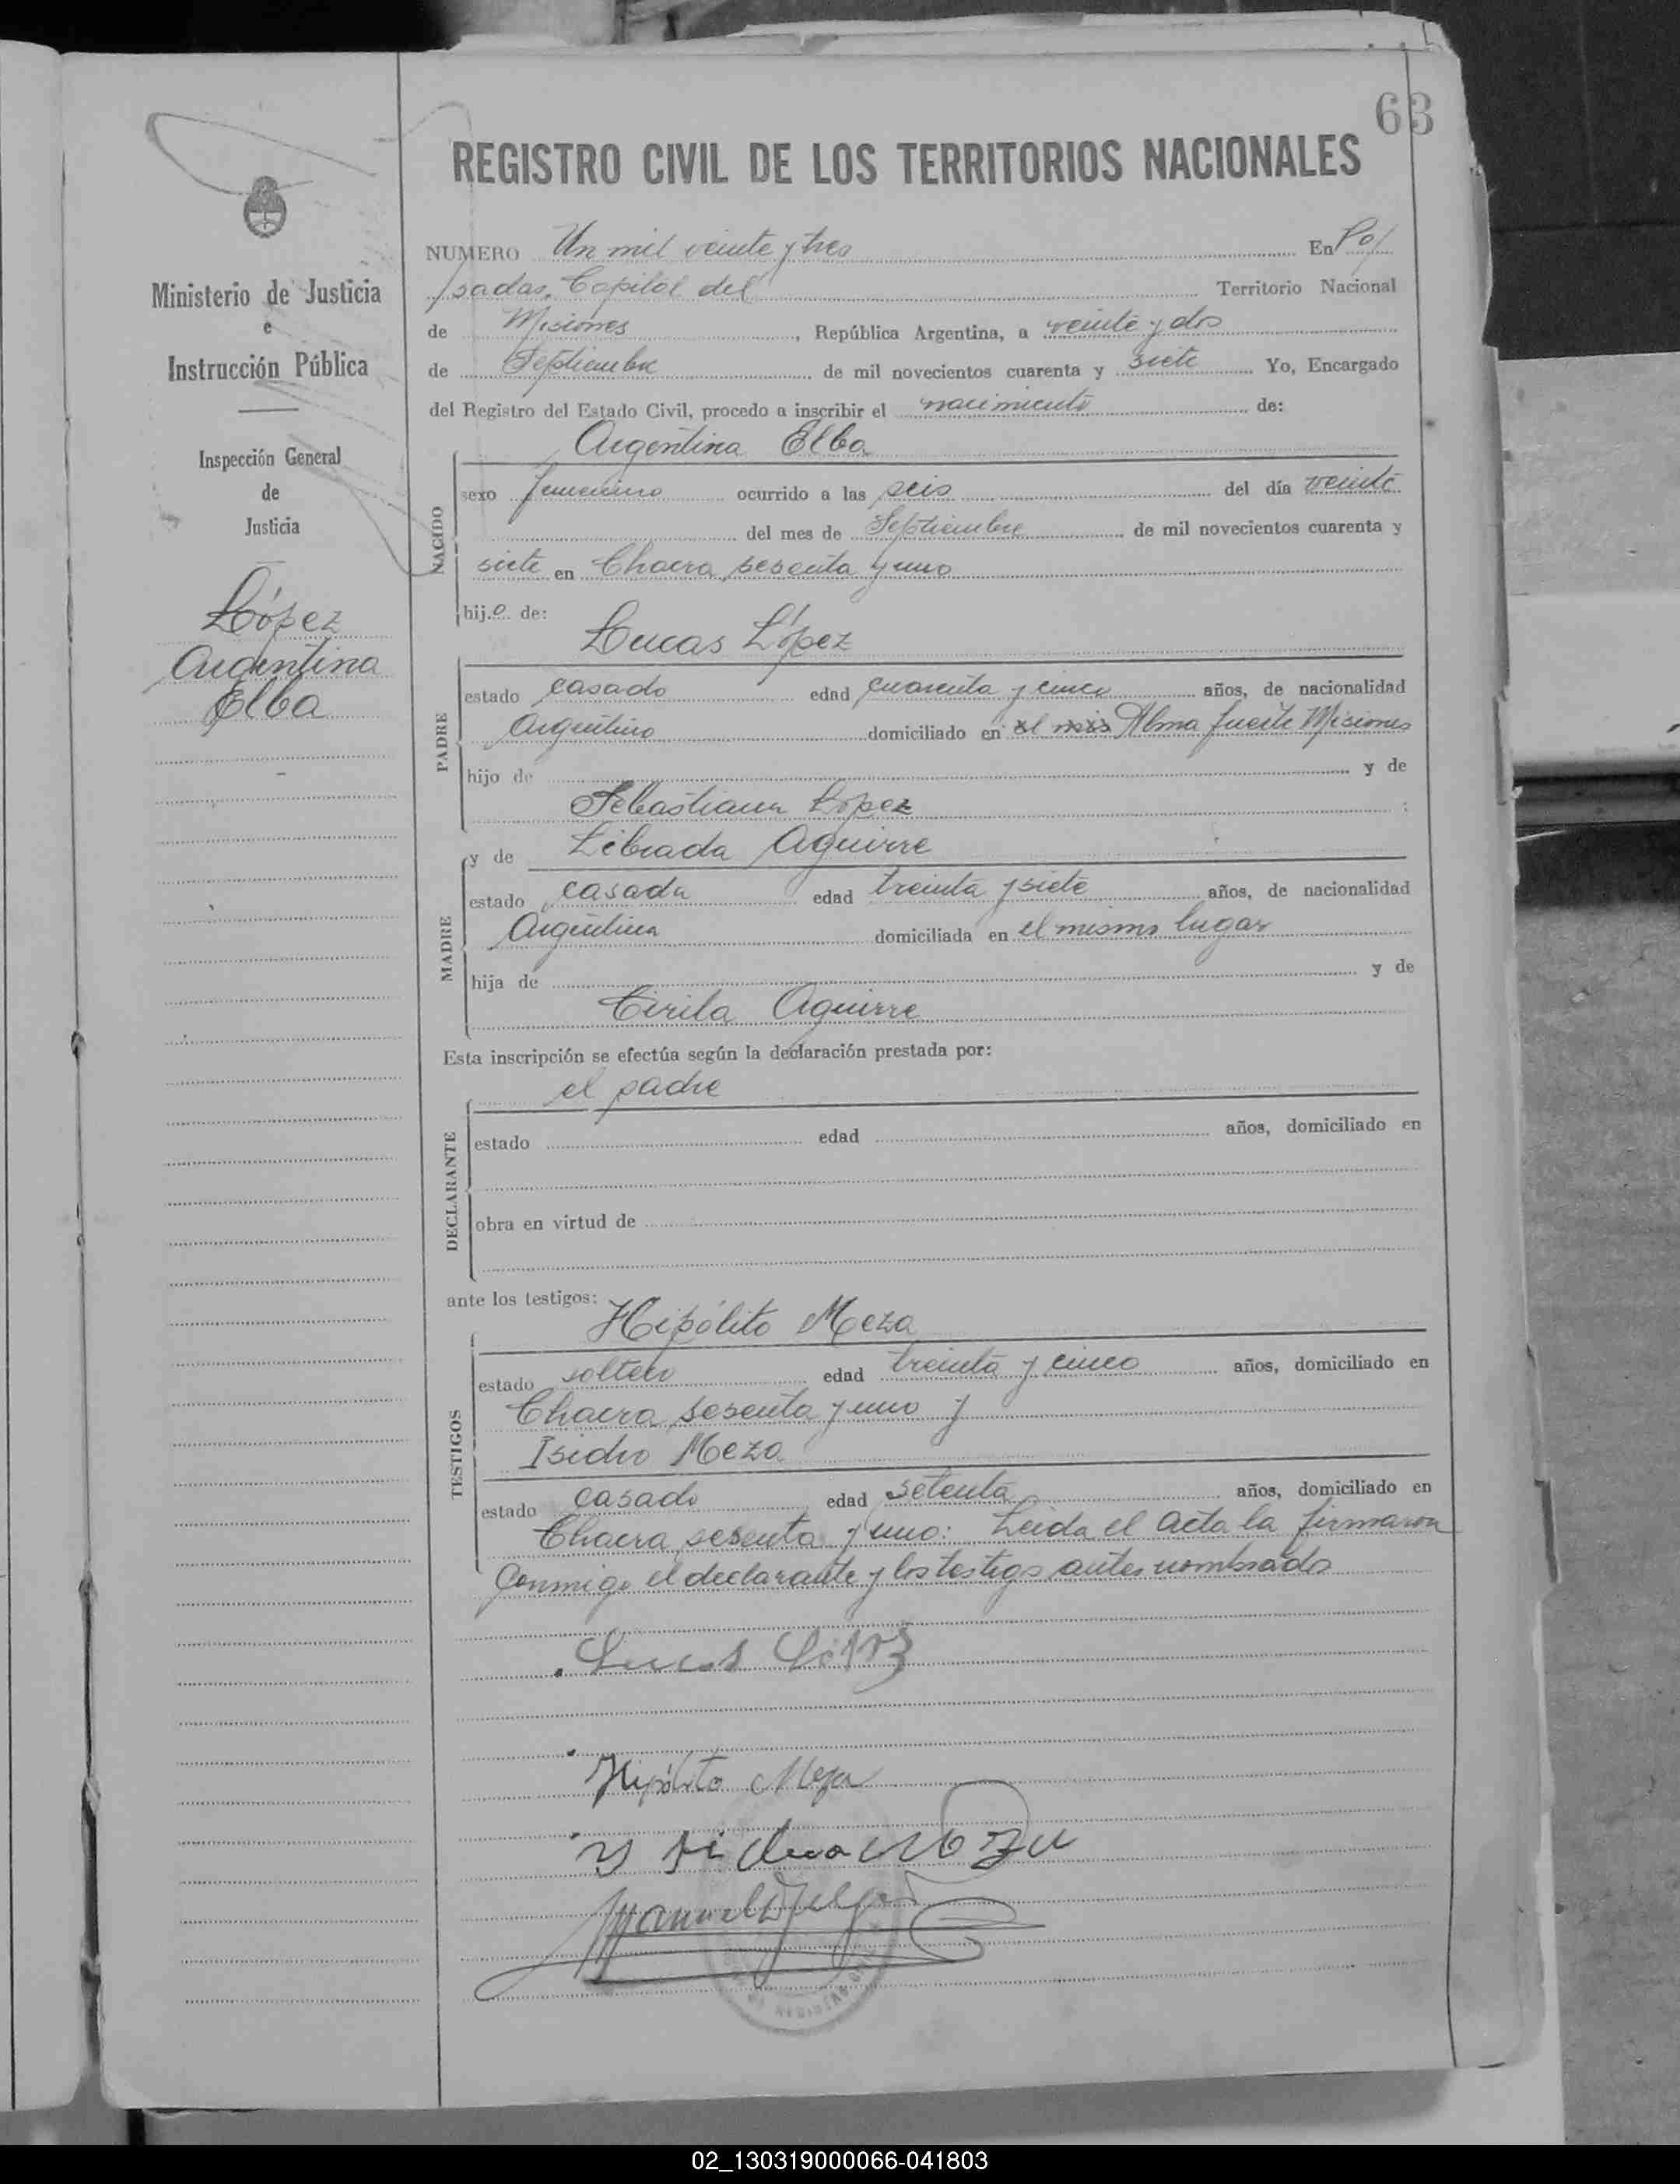 63
REGISTRO CIVIL DE LOS TERRITORIOS NACIONALES
Ministerio de Justicia
e
Instrucción Pública
Inspección General
de
Justicia
López
Argentina
Elba
NUMERO Un mil veinte y tres En Po/
/sadas, Capital del Territorio Nacional
de Misiones, República Argentina, a veinte y dos
de Septiembre de mil novecientos cuarenta y siete Yo, Encargado
del Registro del Estado Civil, procedo a inscribir el nacimiento de:
Argentina Elba
NACIDO
sexo femenino ocurrido a las seis del día veinte
del mes de Septiembre de mil novecientos cuarenta y
siete en Chacra sesenta y uno
hij.a de:
Lucas López
PADRE
estado casado edad cuarenta y cinco años, de nacionalidad
Argentino domiciliado en el Alma fuerte Misiones
hijo de y de
Sebastiana López
y de Librada Aguirre
MADRE
estado casada edad treinta y siete años, de nacionalidad
Argentina domiciliada en el mismo lugar
hija de y de
Cirila Aguirre
Esta inscripción se efectúa según la declaración prestada por:
el padre
DECLARANTE
estado edad años, domiciliado en
obra en virtud de
ante los testigos:
Hipólito Meza
TESTIGOS
estado soltero edad treinta y cinco años, domiciliado en
Chacra sesenta y uno y
Isidro Meza
estado casado edad setenta años, domiciliado en
Chacra sesenta y uno: Leida el acta la firmaron
conmigo el declarante y los testigos antes nombrado
Lucas López
Hipólito Meza
02_130319000066-041803